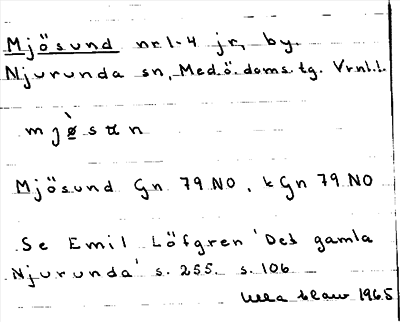 Mjösund nr 1-4 jr, by.
Njurunda sn, Med.ö. doms. tg. Vrnl.l.
mjø̀sun
Mjösund Gn 79 NO, tGn 79 NO
Se Emil Löfgren 'Det gamla
Njurunda' s. 255. s. 106
1965